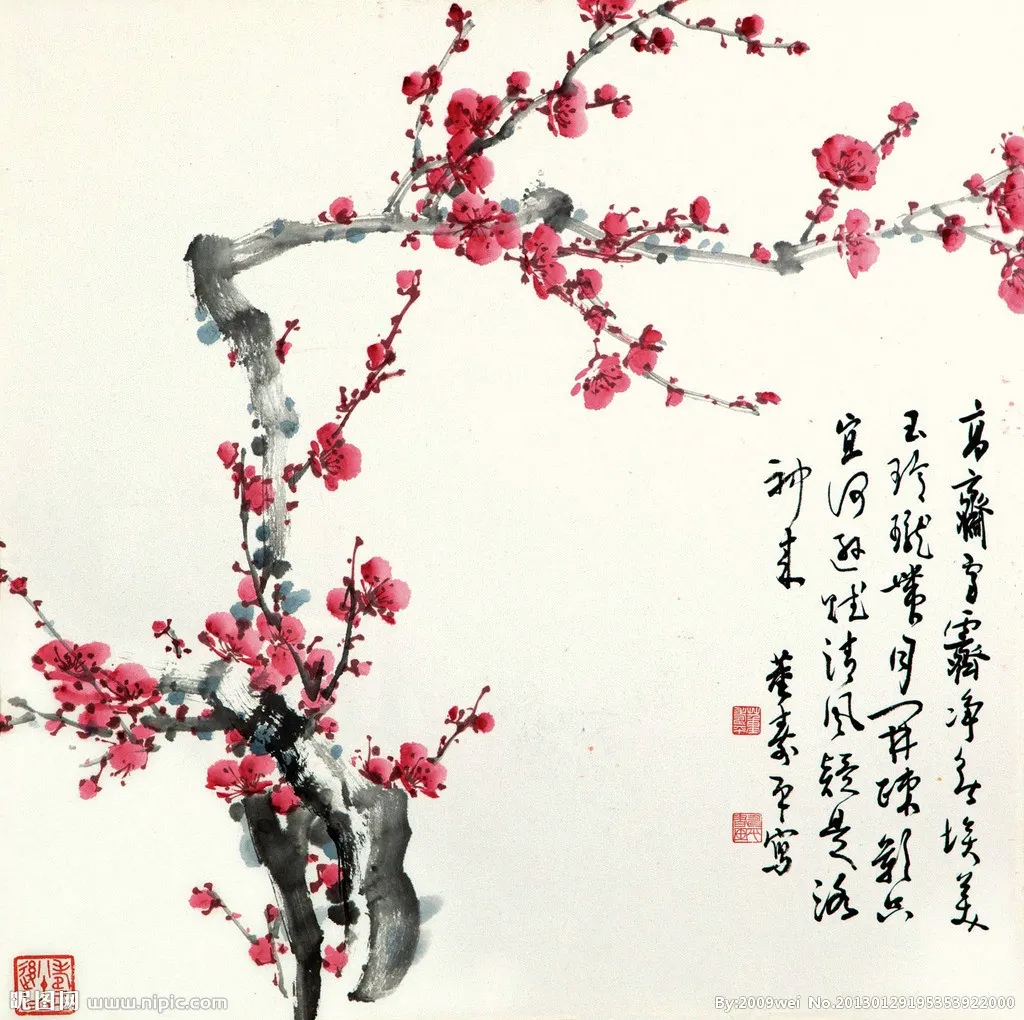 高齋雪霽净無埃美
玉玲瓏帶月開疎影只
宜何遜賦清風疑是洛
神来 董壽平寫
昵图网 www.nipic.com
By:2009wei No.20130129195353922000